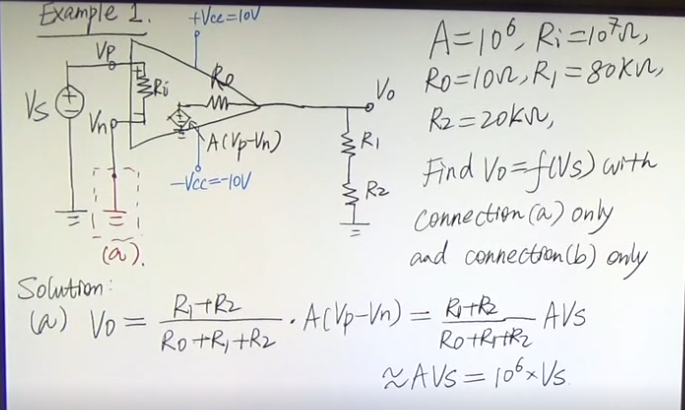 Example 1.
+Vcc=10V
Vp
Ri
Ro
Vs
Vn
A(Vp-Vn)
Vo
R1
R2
-Vcc=-10V
(a).
A=10⁶, Ri=10⁷Ω,
Ro=10Ω, R1=80KΩ,
R2=20KΩ,
Find Vo=f(Vs) with
connection(a) only
and connection(b) only
Solution:
(a) Vo = (R1+R2)/(Ro+R1+R2) · A(Vp-Vn) = (R1+R2)/(Ro+R1+R2) AVs
≈AVs=10⁶×Vs